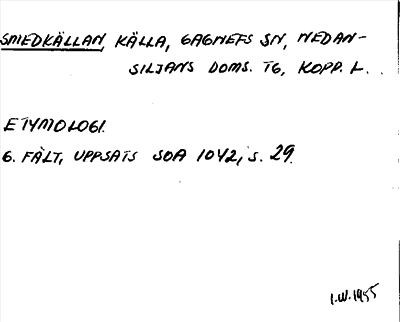 SMEDKÄLLAN, KÄLLA, GAGNEFS SN, NEDAN-
SILJANS DOMS. TG, KOPP. L.
ETYMOLOGI.
G. FÄLT, UPPSATS SOA 1042, S. 29.
I.W. 1955